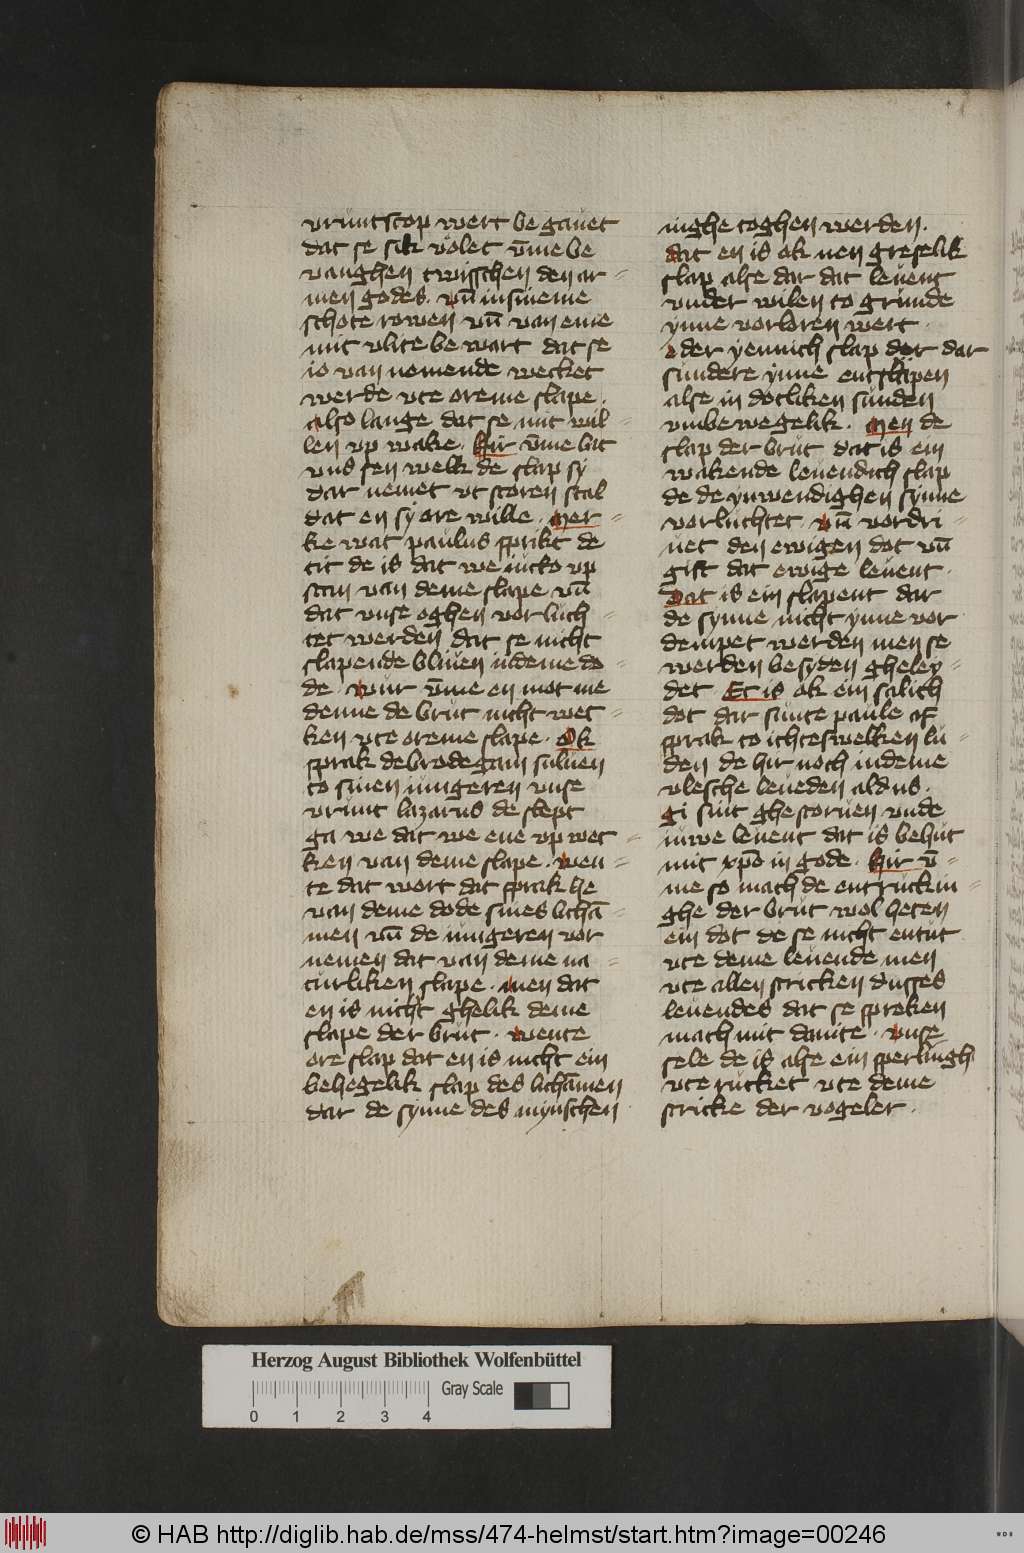 vruntscop wert be gauet
dat se sik volet v̄me be
vanghen twisschen den ar-
men godes. vn̄ in sineme
schote rowen vn̄ van eme
mit vlite be wart dat se
io van nemende wecket
werde vte oreme slape.
also lange dat se mit wil-
len vp wake. hir v̄me lat
vns sen welk de slap sy
dar nemet vt storen scal
dat en sy ore wille. mer-
ke wat paulus sprikt de
tit de is dat we iucko vp
stan van deme slape vn̄
dat vnse oghen vorluch-
tet werden dat se nicht
slapende bliuen in deme do-
de. wur v̄me en mot me
denne de brut nicht wec-
ken vte oreme slape. Ok
sprak de brodegam suluen
to sinen iungeren vnse
vrunt lazarus de slept
ga we dat we ene vp wec-
ken van deme slape. wen-
te dat wort dat sprak he
van deme dode sines lichā-
men vn̄ de iungeren vor
nemen dat van deme na-
turliken slape. men dat
en is nicht ghelik deme
slape der brut. wente
ore slap dat en is nicht ein
behegelik slap des lichāmen
dar de synne des mynschen
inghe toghen werden.
dat en is ok nen greselik
slap alse dar dat leuent
vnder wilen to grunde
ynne vorloren wert.
oder yennich slap der dar
sundere ynne entslapen
alse in dotliken sunden
vmbewegelik. men de
slap der brut dat is ein
wakende leuendich slap
de de ynwendighen synne
vorluchtet vn̄ vordri-
uet den ewigen dot vn̄
gift dat ewige leuent.
Dat is ein slapent dar
de synne nicht ynne vor
dempet werden men se
werden besyden gheley-
det. Et is ok ein salich
dot dar sunte paule af
sprak to ichteswelken lu-
den de hir noch in deme
vlesche leueden aldus.
gi sint ghestoruen vnde
iuwe leuent dat is behut
mit xp̄o in gode. hir v̄-
me so mach de entruckin-
ghe der brut wol heten
ein dot de se nicht entut
vte deme leuende men
vte allen stricken dusses
leuendes dat se spreken
mach mit dauite. vnse
sele de is alse ein sperlingh
vte rucket vte deme
stricke der vogeler.
Herzog August Bibliothek Wolfenbüttel
Gray Scale
0 1 2 3 4
© HAB http://diglib.hab.de/mss/474-helmst/start.htm?image=00246
WDB